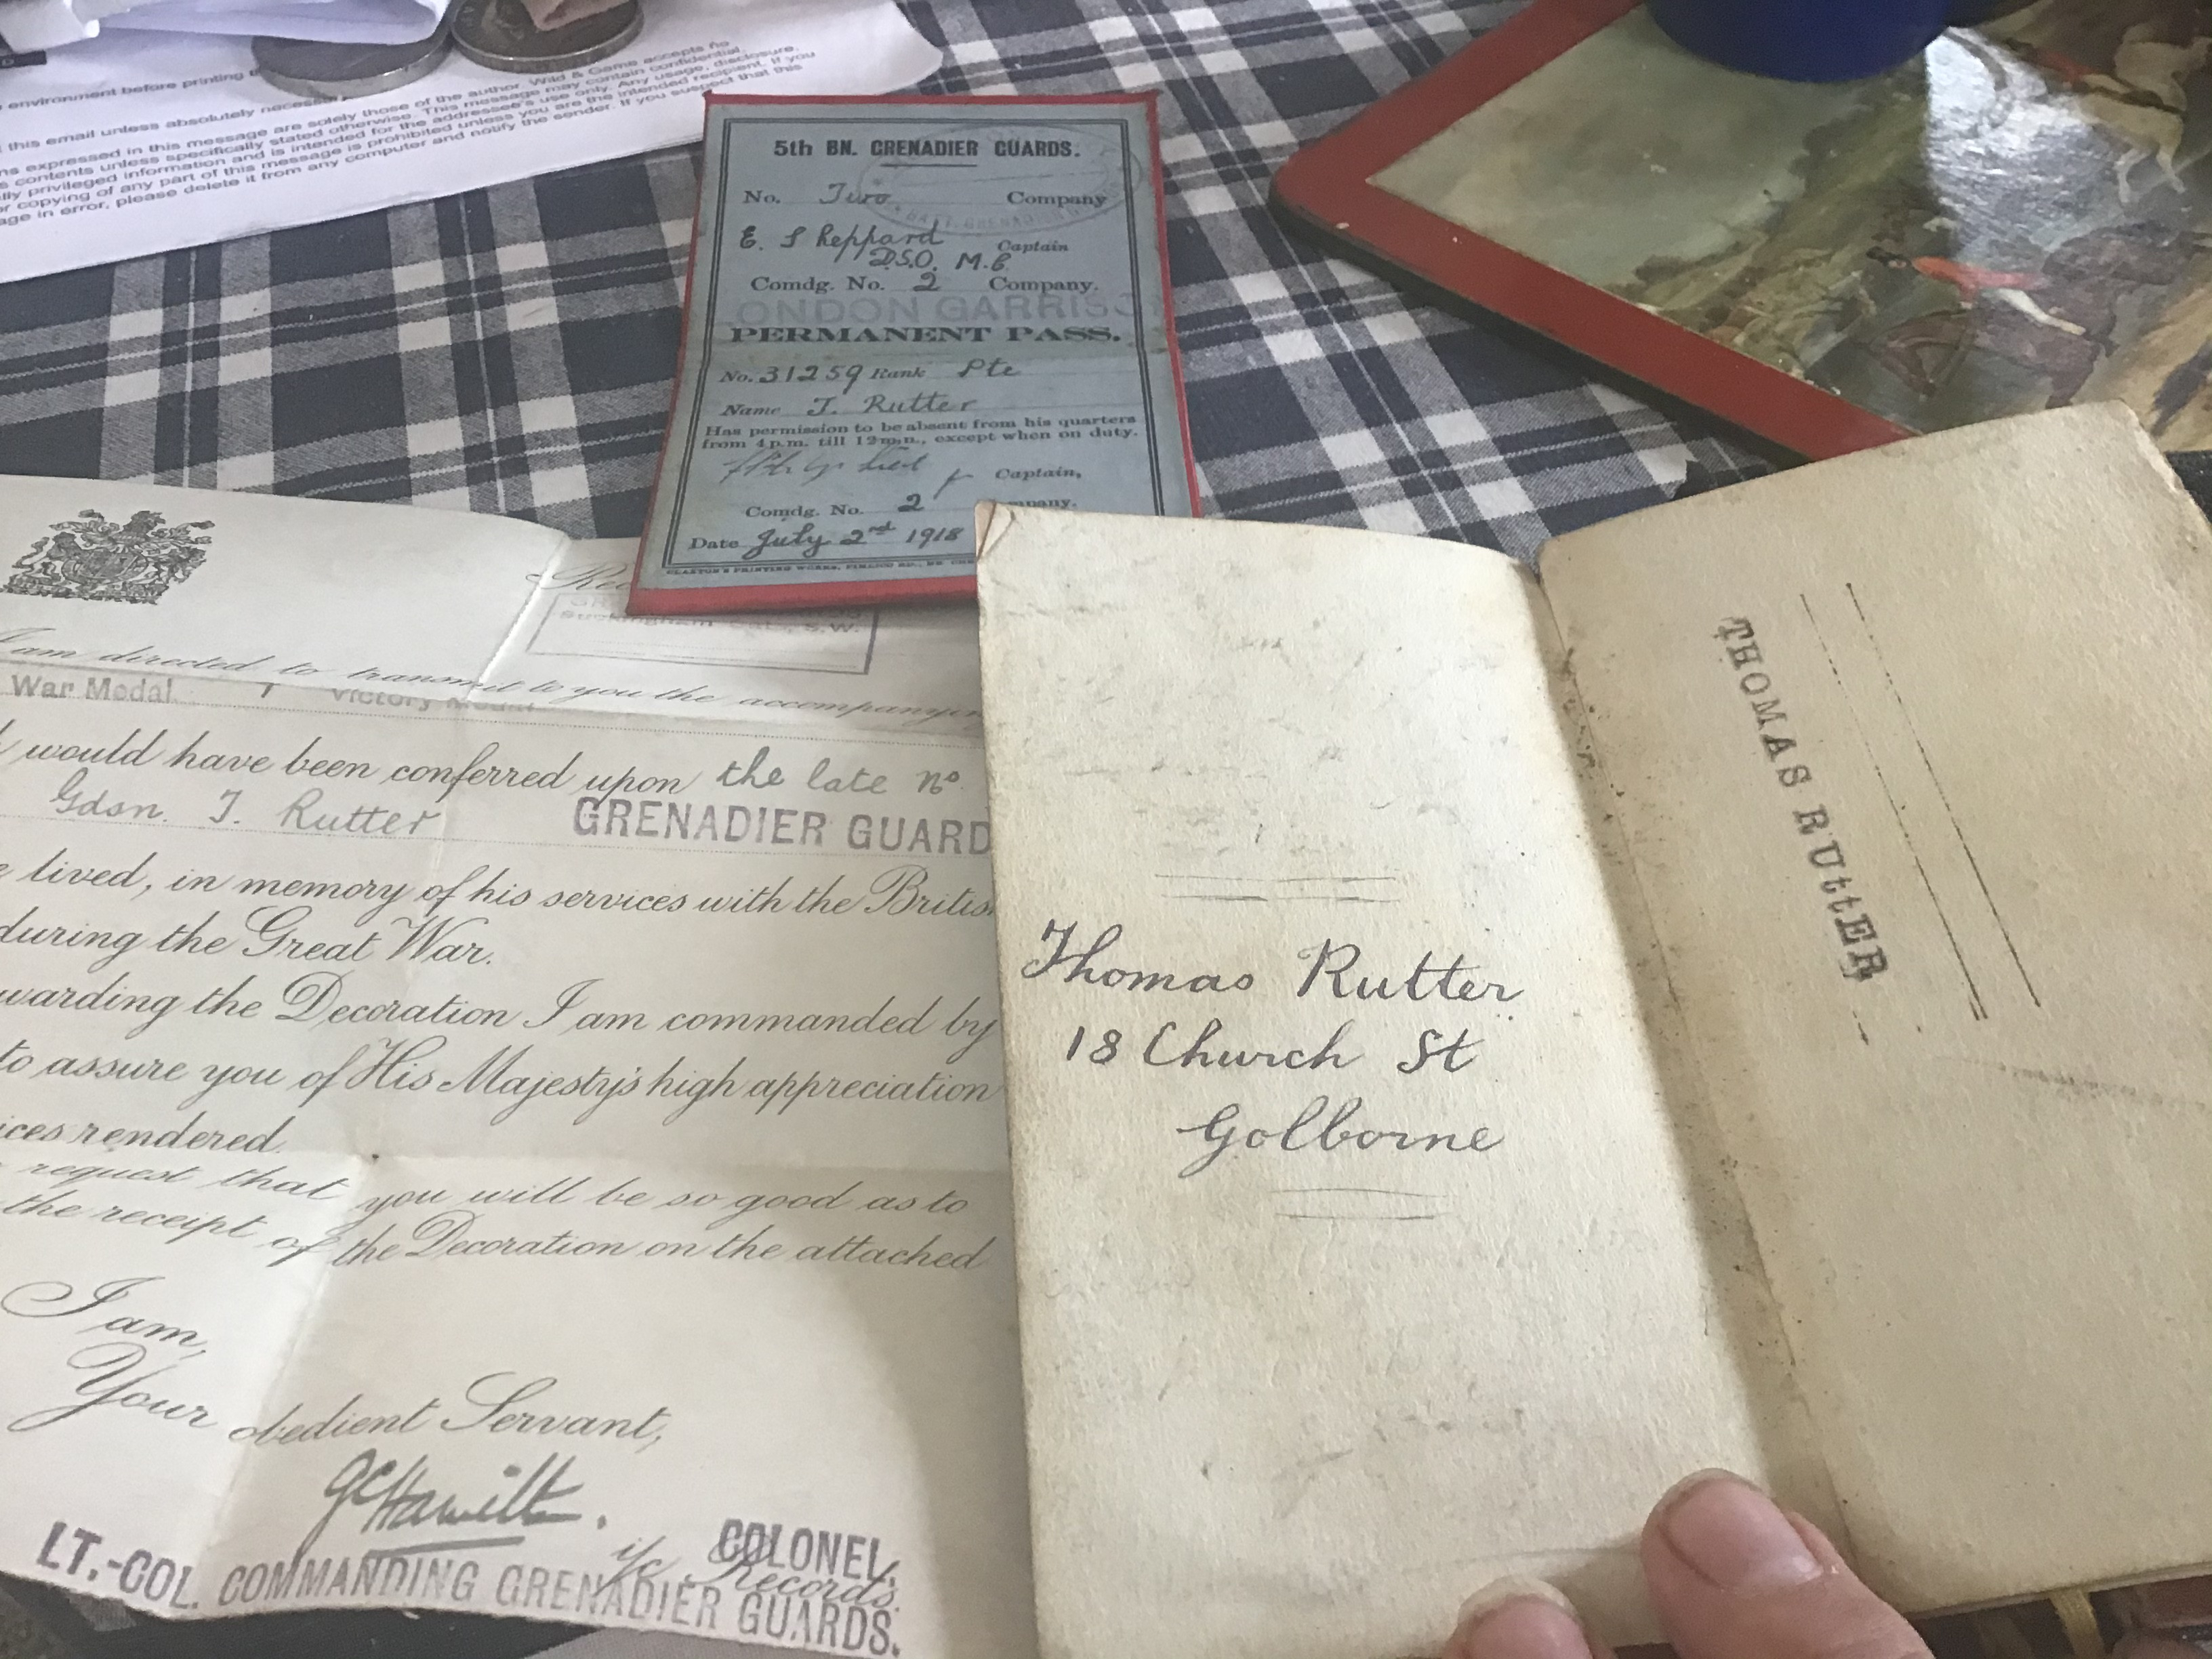 environment before printing
this email unless absolutely necessary
Wild & Game accepts no
s expressed in this message are solely those of the author.
s contents unless specifically stated otherwise. This message may contain confidential,
lly privileged information and is intended for the addressee's use only. Any usage, disclosure,
or copying of any part of this message is prohibited unless you are the intended recipient. If you
age in error, please delete it from any computer and notify the sender. If you suspect that this
5th BN. GRENADIER GUARDS.
No. Two Company
E. Sheppard Captain
D.S.O. M.C.
Comdg. No. 2 Company.
ONDON GARRISO
PERMANENT PASS.
No. 31259 Rank Pte
Name T. Rutter
Has permission to be absent from his quarters
from 4 p.m. till 12 m.n., except when on duty.
Captain,
Comdg. No. 2 mpany.
Date July 2nd 1918
Buckingham Gate, S.W.
I am directed to transmit to you the accompanying
War Medal Victory Medal
would have been conferred upon the late No
Gdsn. T. Rutter GRENADIER GUARD
lived, in memory of his services with the British
during the Great War.
warding the Decoration I am commanded by
to assure you of His Majesty's high appreciation
ices rendered.
request that you will be so good as to
the receipt of the Decoration on the attached
I am,
Your obedient Servant,
GCHamilton.
COLONEL,
i/c Records.
LT.-COL. COMMANDING GRENADIER GUARDS.
Thomas Rutter
18 Church St
Golborne
THOMAS RUttER